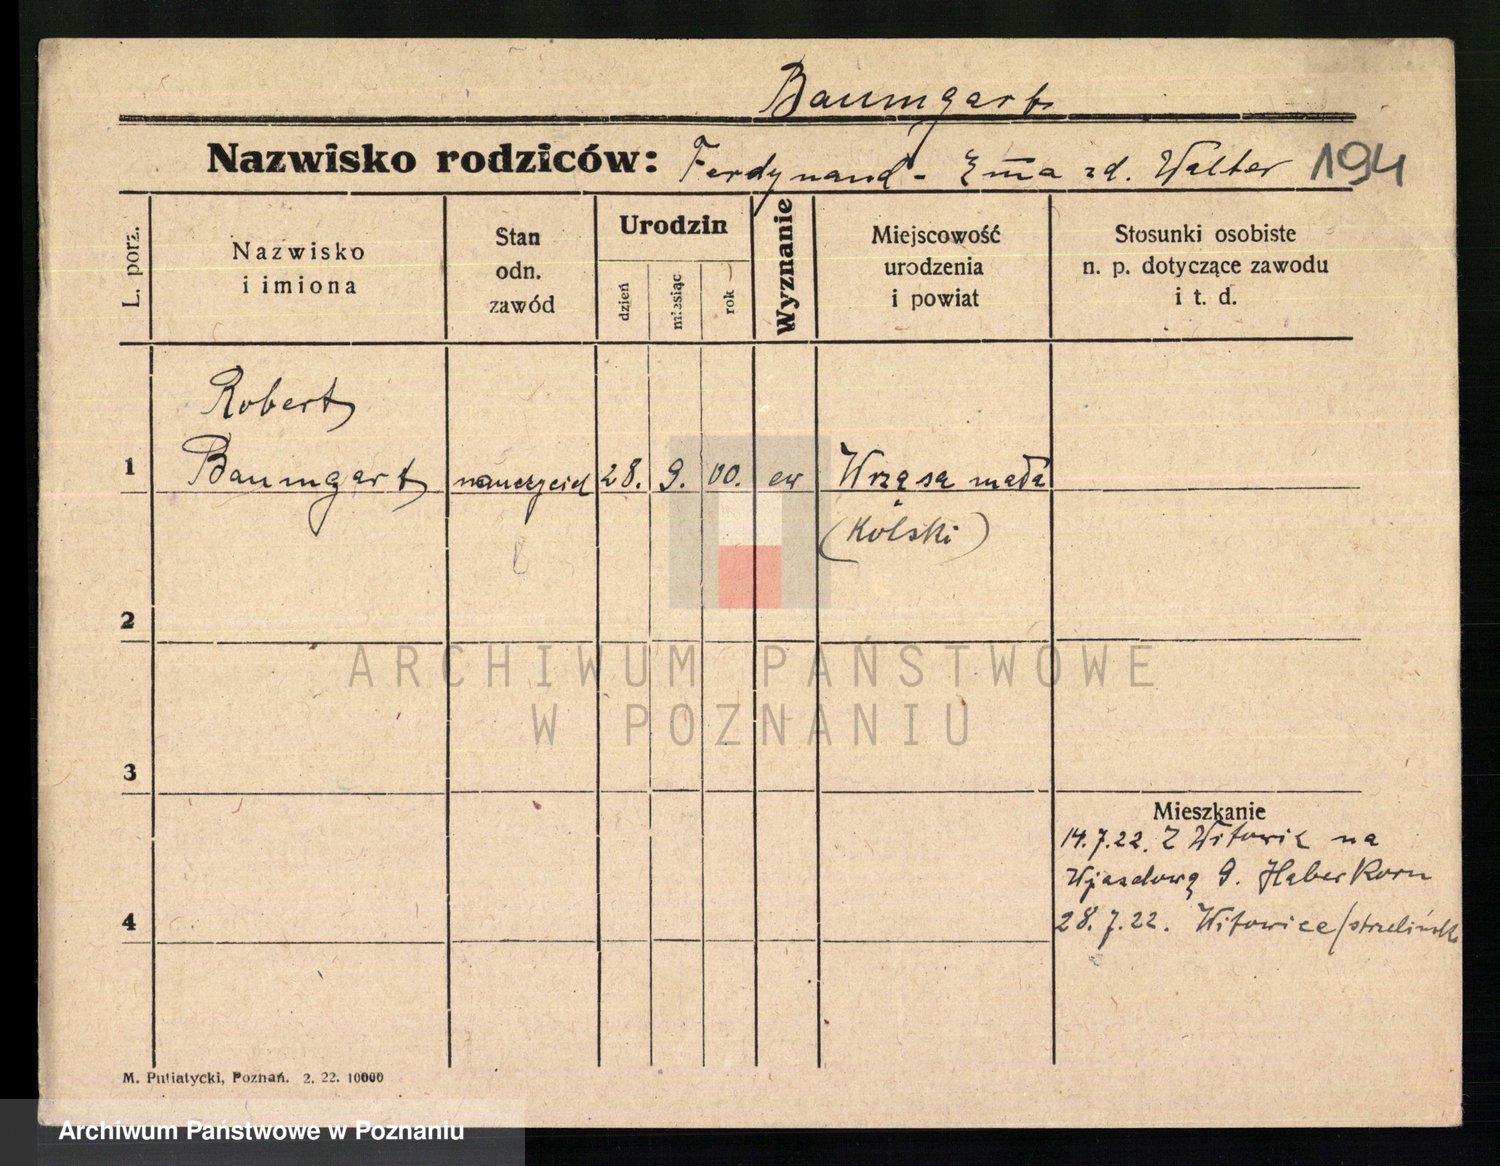 Baumgart
Nazwisko rodziców: Ferdynand - Em̄a zd. Walter 194
L. porz.
Nazwisko
i imiona
Stan
odn.
zawód
Urodzin
dzień
miesiąc
rok
Wyznanie
Miejscowość
urodzenia
i powiat
Stosunki osobiste
n. p. dotyczące zawodu
i t. d.
Robert
1 Baumgart nauczyciel 28. 9. 00. ew Wrząsa mała
(Kolski)
2
ARCHIWUM PAŃSTWOWE
W POZNANIU
3
Mieszkanie
14.7.22. Z Witowic na
Wjazdową 9. Haberkorn
4 28.7.22. Witowice/strelińsk
M. Putiatycki, Poznań. 2. 22. 10000
Archiwum Państwowe w Poznaniu